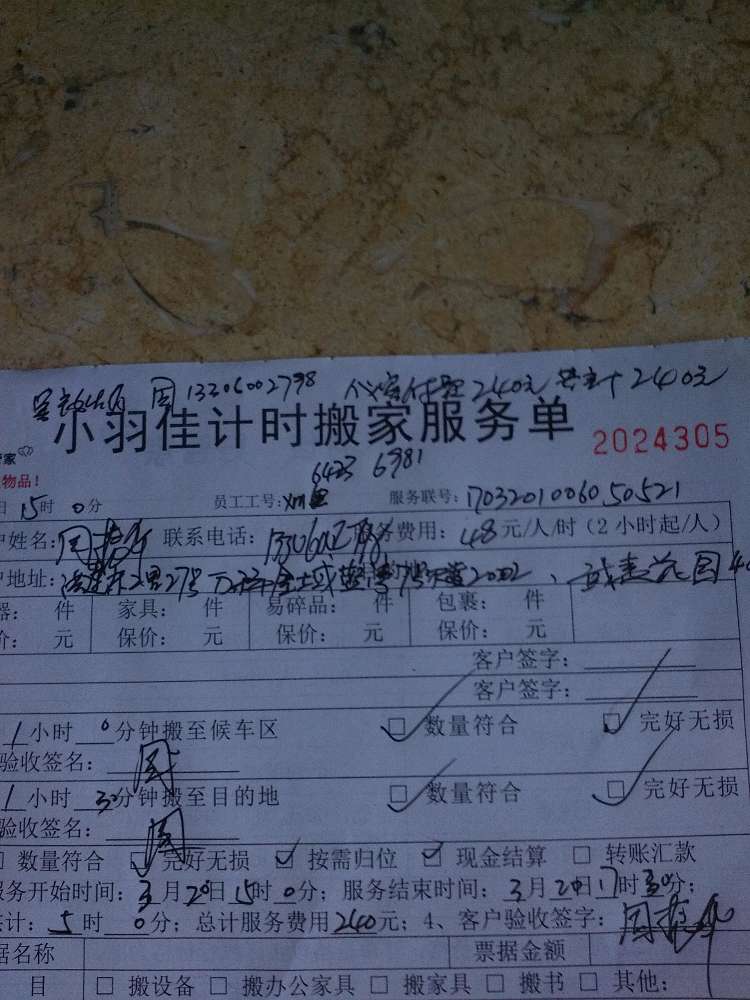 周 13306002798 240元 共计240元
小羽佳计时搬家服务单 2024305
家
物品!
6423 6981
日 15时 0分 员工工号: 服务联号: 170320100605.0521
户姓名: 周 联系电话: 务费用: 48元/人/时（2小时起/人）
户地址: 27号 2002、 花园
器: 件 家具: 件 易碎品: 件 包裹: 件
价: 元 保价: 元 保价: 元 保价: 元
客户签字:
客户签字:
1小时 0分钟搬至候车区 数量符合 完好无损
验收签名: 周
1小时 30分钟搬至目的地 数量符合 完好无损
验收签名: 周
数量符合 完好无损 按需归位 现金结算 转账汇款
服务开始时间: 3月20日15时0分; 服务结束时间: 3月20日17时30分;
共计: 5时 0分; 总计服务费用240元; 4、客户验收签字: 周
据名称 票据金额
目 搬设备 搬办公家具 搬家具 搬书 其他: